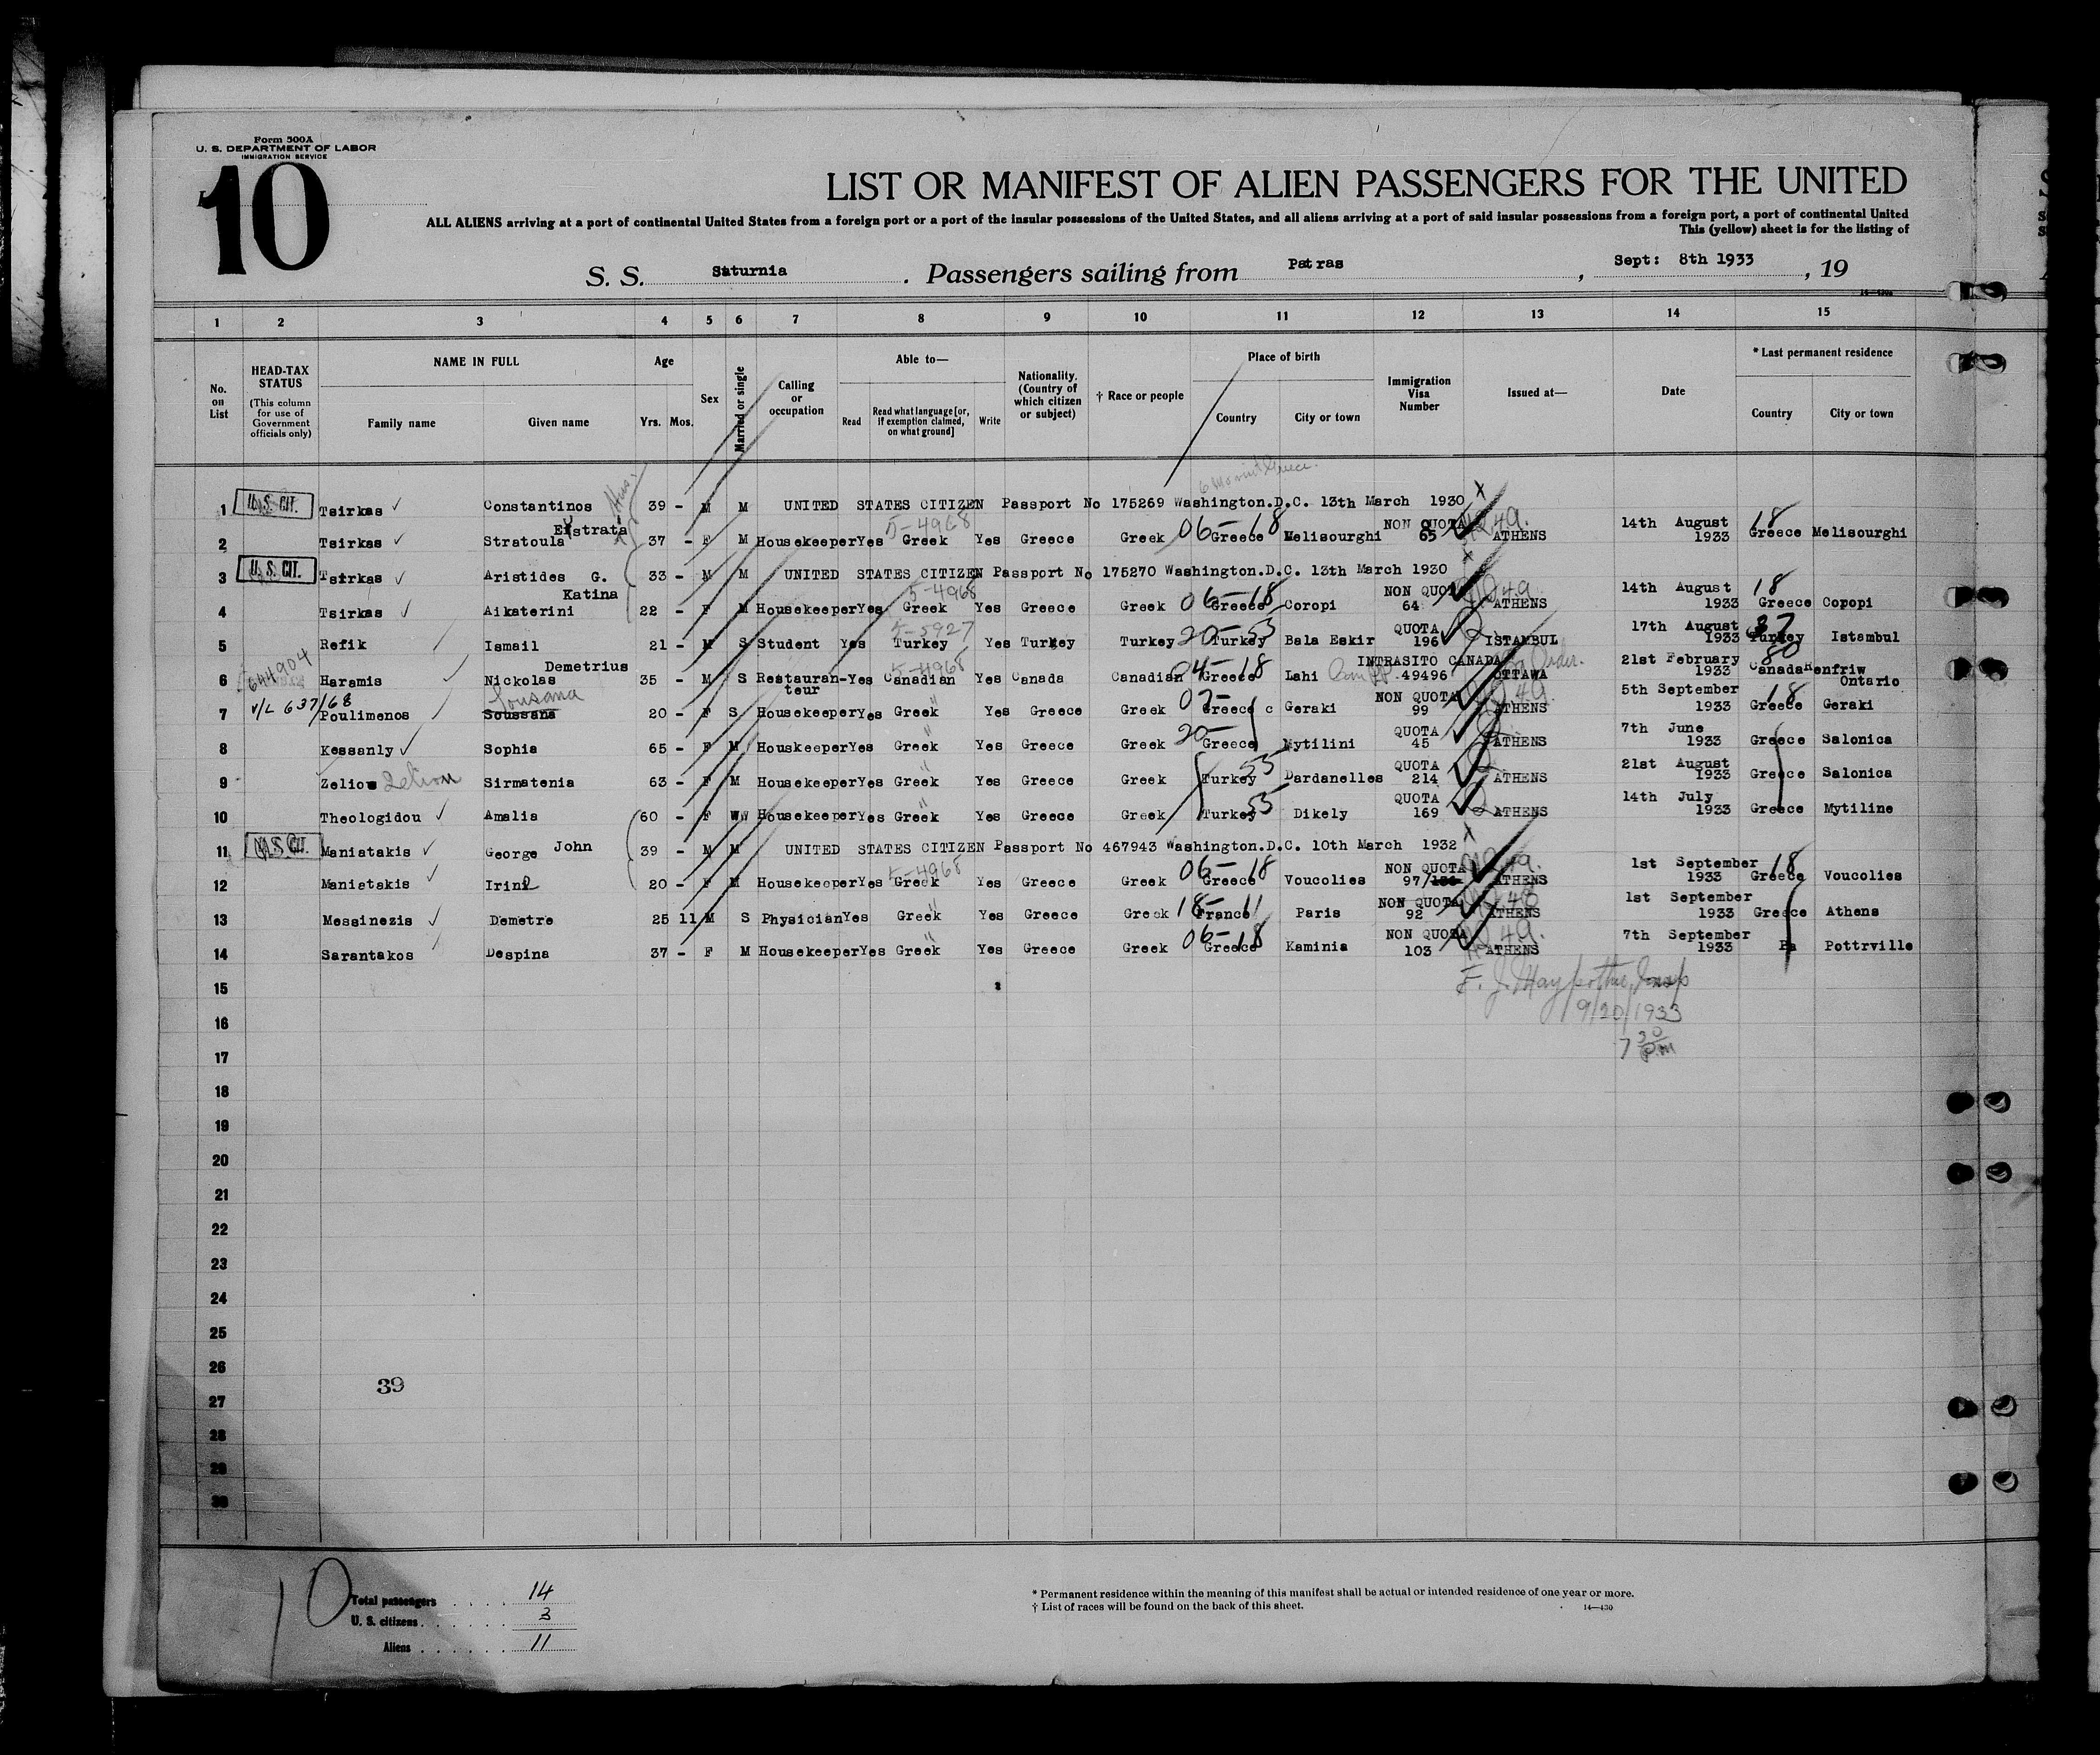 Form 500A
U. S. DEPARTMENT OF LABOR
IMMIGRATION SERVICE
10
LIST OR MANIFEST OF ALIEN PASSENGERS FOR THE UNITED
ALL ALIENS arriving at a port of continental United States from a foreign port or a port of the insular possessions of the United States, and all aliens arriving at a port of said insular possessions from a foreign port, a port of continental United
This (yellow) sheet is for the listing of
S. S. Saturnia . Passengers sailing from Patras , Sept: 8th 1933 , 19
1 2 3 4 5 6 7 8 9 10 11 12 13 14 15
No. on List HEAD-TAX STATUS (This column for use of Government officials only) NAME IN FULL Family name Given name Age Yrs. Mos. Sex Married or single Calling or occupation Able to— Read Read what language [or, if exemption claimed, on what ground] Write Nationality. (Country of which citizen or subject) † Race or people Place of birth Country City or town Immigration Visa Number Issued at— Date * Last permanent residence Country City or town
1 U. S. CIT. Tsirkas Constantinos 39 - M M UNITED STATES CITIZEN Passport No 175269 Washington.D.C. 13th March 1930
2 Tsirkas Stratoula Efstrata 37 - F M Housekeeper Yes Greek 5-4968 Yes Greece Greek 06-18 Greece Melisourghi NON QUOTA 65 ATHENS 14th August 1933 18 Greece Melisourghi
3 U. S. CIT. Tsirkas Aristides G. 33 - M M UNITED STATES CITIZEN Passport No 175270 Washington.D.C. 13th March 1930
4 Tsirkas Aikaterini Katina 22 - F M Housekeeper Yes Greek 5-4968 Yes Greece Greek 06-18 Greece Coropi NON QUOTA 64 ATHENS 14th August 1933 18 Greece Coropi
5 Refik Ismail 21 - M S Student Yes Turkey 5-5927 Yes Turkey Turkey 20-53 Turkey Bala Eskir QUOTA 196 ISTAMBUL 17th August 1933 37 Turkey Istambul
6 644904 Haramis Nickolas Demetrius 35 - M S Restauran-teur Yes Canadian 5-4968 Yes Canada Canadian 04-18 Greece Lahi INTRASITO CANADA 49496 OTTAWA 21st February 1933 80 Canada Renfriw Ontario
7 V/L 637/68 Poulimenos Soussana Sousana 20 - F S Housekeeper Yes Greek Yes Greece Greek 07- Greece c Geraki NON QUOTA 99 ATHENS 5th September 1933 18 Greece Geraki
8 Kessanly Sophia 65 - F M Houskeeper Yes Greek " Yes Greece Greek 20- Greece Mytilini QUOTA 45 ATHENS 7th June 1933 Greece Salonica
9 Zeliow Zelion Sirmatenia 63 - F M Housekeeper Yes Greek " Yes Greece Greek Turkey 53 Dardanelles QUOTA 214 ATHENS 21st August 1933 Greece Salonica
10 Theologidou Amalia 60 - F W Housekeeper Yes Greek " Yes Greece Greek Turkey 53 Dikely QUOTA 169 ATHENS 14th July 1933 Greece Mytiline
11 U. S. CIT. Maniatakis George John 39 - M M UNITED STATES CITIZEN Passport No 467943 Washington.D.C. 10th March 1932
12 Maniatakis Irine 20 - F M Housekeeper Yes Greek 5-4968 Yes Greece Greek 06-18 Greece Voucolies NON QUOTA 97/ ATHENS 1st September 1933 18 Greece Voucolies
13 Messinezis Demetre 25 11 M S Physician Yes Greek " Yes Greece Greek 18-11 France Paris NON QUOTA 92 ATHENS 1st September 1933 Greece Athens
14 Sarantakos Despina 37 - F M Housekeeper Yes Greek " Yes Greece Greek 06-18 Greece Kaminia NON QUOTA 103 ATHENS 7th September 1933 Pa Pottrville
15
16 9/20/1933
17 7 30 P.m
18
19
20
21
22
23
24
25
26
39
27
28
29
30
10
Total passengers 14
U. S. citizens 3
Aliens 11
* Permanent residence within the meaning of this manifest shall be actual or intended residence of one year or more.
† List of races will be found on the back of this sheet.
14—430